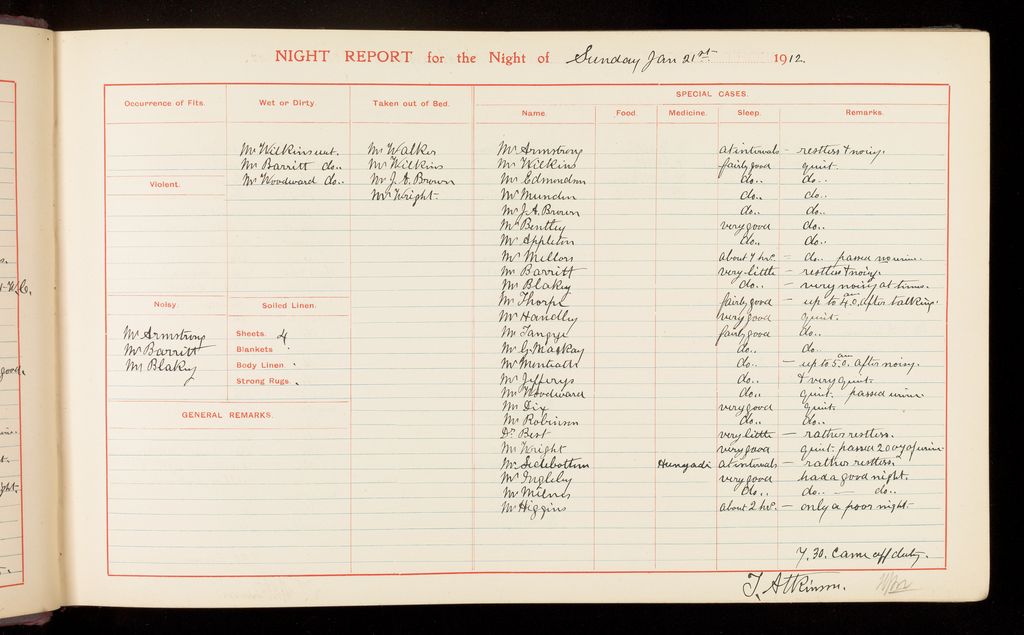 NIGHT REPORT for the Night of Sunday Jan 21st 1912.
SPECIAL CASES.
Occurrence of Fits. Wet or Dirty. Taken out of Bed. Name. Food. Medicine. Sleep. Remarks.
Mr Wilkins wet. Mr Walker Mr Armstrong at intervals — restless & noisy.
Mr Barritt do.. Mr Wilkins Mr Wilkins fairly good quiet.
Violent. Mr Woodward do.. Mr J.A. Brown Mr Edmondson do.. do..
Mr Wright. Mr Munden do.. do..
Mr J.A. Brown do.. do..
Mr Bentley very good do..
Mr Appleton do.. do..
Mr Mellors about 7 hrs. — do.. passed no urine.
Mr Barritt very little — restless & noisy.
Mr Blakey do.. — very noisy at times.
Noisy. Soiled Linen. Mr Thorpe fairly good — up to 4.0 am after talking.
Mr Handley very good quiet.
Mr Armstrong Sheets. 4 Mr Tangye fairly good do..
Mr Barritt Blankets Mr G. Mackay do.. do..
Mr Blakey Body Linen. Mr Menteath do.. — up to 5.0. am after noisy.
Strong Rugs. Mr Jefferys do.. & very quiet.
Mr Woodward do.. quiet. passed urine
Mr Dix very good quiet.
GENERAL REMARKS. Mr Robinson do.. do..
Dr Best very little — rather restless.
Mr Wright very good quiet. passed 20 ozs of urine
Mr Sidebottom Hunyadi at intervals — rather restless.
Mr Ingleby very good had a good night.
Mr Milnes do.. do.. — do..
Mr Higgins about 2 hrs. — only a poor night.
7.30. Came off duty.
T. Atkinson.